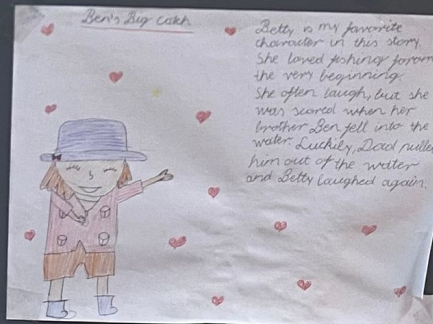 Ben's Big Catch
Betty is my favorite
character in this story.
She loved fishing forom
the very beginning.
She often laugh, but she
was scared when her
brother Ben fell into the
water. Luckily, Dad pulled
him out of the water
and Betty laughed again.